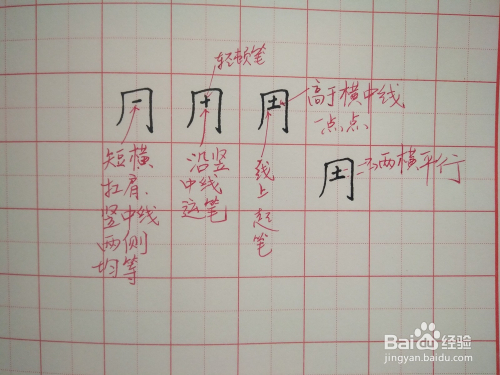 轻顿笔
高于横中线
一点点
短横
扛肩，
竖中线
两侧
均等
沿竖
中线
运笔
线上起笔
两横平行
Baidu经验
jingyan.baidu.com